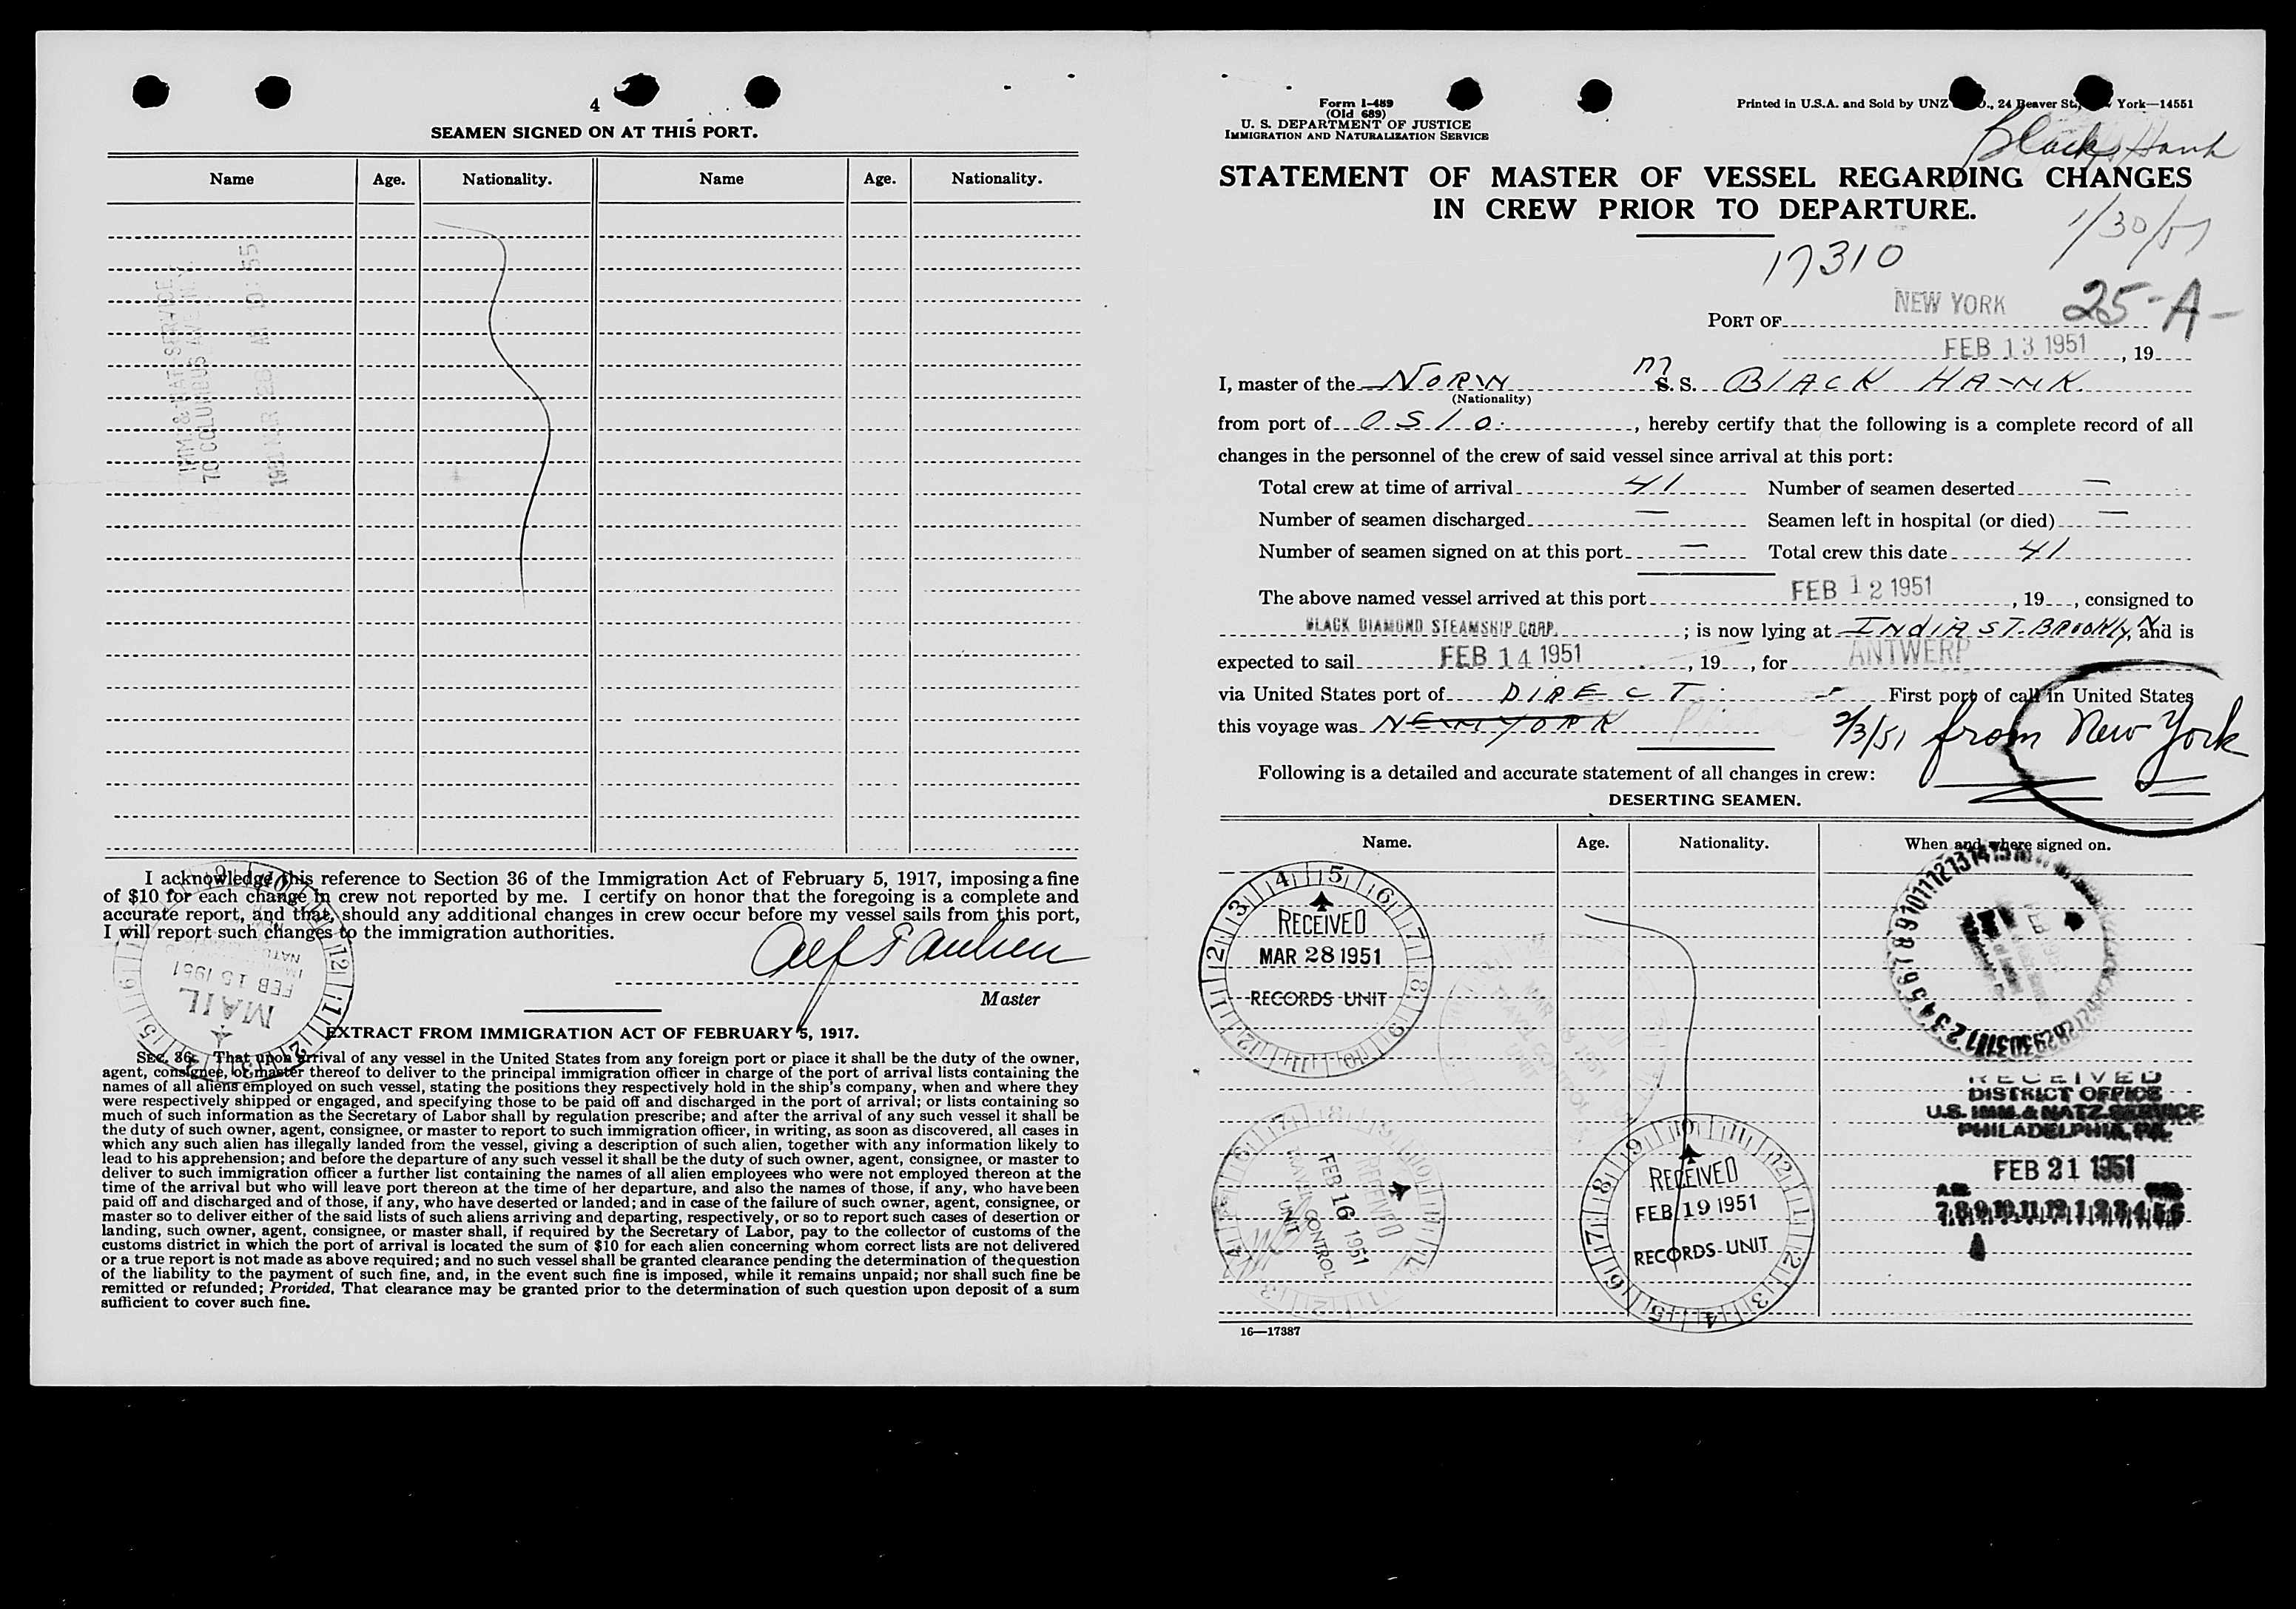 4
SEAMEN SIGNED ON AT THIS PORT.
Name Age. Nationality. Name Age. Nationality.
I acknowledge this reference to Section 36 of the Immigration Act of February 5, 1917, imposing a fine
of $10 for each change in crew not reported by me. I certify on honor that the foregoing is a complete and
accurate report, and that, should any additional changes in crew occur before my vessel sails from this port,
I will report such changes to the immigration authorities.
Master
MAIL
FEB 15 1951
EXTRACT FROM IMMIGRATION ACT OF FEBRUARY 5, 1917.
SEC. 36. That upon arrival of any vessel in the United States from any foreign port or place it shall be the duty of the owner,
agent, consignee, or master thereof to deliver to the principal immigration officer in charge of the port of arrival lists containing the
names of all aliens employed on such vessel, stating the positions they respectively hold in the ship's company, when and where they
were respectively shipped or engaged, and specifying those to be paid off and discharged in the port of arrival; or lists containing so
much of such information as the Secretary of Labor shall by regulation prescribe; and after the arrival of any such vessel it shall be
the duty of such owner, agent, consignee, or master to report to such immigration officer, in writing, as soon as discovered, all cases in
which any such alien has illegally landed from the vessel, giving a description of such alien, together with any information likely to
lead to his apprehension; and before the departure of any such vessel it shall be the duty of such owner, agent, consignee, or master to
deliver to such immigration officer a further list containing the names of all alien employees who were not employed thereon at the
time of the arrival but who will leave port thereon at the time of her departure, and also the names of those, if any, who have been
paid off and discharged and of those, if any, who have deserted or landed; and in case of the failure of such owner, agent, consignee, or
master so to deliver either of the said lists of such aliens arriving and departing, respectively, or so to report such cases of desertion or
landing, such owner, agent, consignee, or master shall, if required by the Secretary of Labor, pay to the collector of customs of the
customs district in which the port of arrival is located the sum of $10 for each alien concerning whom correct lists are not delivered
or a true report is not made as above required; and no such vessel shall be granted clearance pending the determination of the question
of the liability to the payment of such fine, and, in the event such fine is imposed, while it remains unpaid; nor shall such fine be
remitted or refunded; Provided, That clearance may be granted prior to the determination of such question upon deposit of a sum
sufficient to cover such fine.
Form I-489
(Old 689)
U. S. DEPARTMENT OF JUSTICE
IMMIGRATION AND NATURALIZATION SERVICE
Printed in U.S.A. and Sold by UNZ , 24 Beaver St., York—14551
Black Hawk
STATEMENT OF MASTER OF VESSEL REGARDING CHANGES
IN CREW PRIOR TO DEPARTURE.
1/30/51
17310
PORT OF NEW YORK 25-A-
FEB 13 1951, 19
I, master of the NORW M S. S. BLACK HAWK
(Nationality)
from port of OSLO, hereby certify that the following is a complete record of all
changes in the personnel of the crew of said vessel since arrival at this port:
Total crew at time of arrival 41 Number of seamen deserted —
Number of seamen discharged — Seamen left in hospital (or died) —
Number of seamen signed on at this port — Total crew this date 41
The above named vessel arrived at this port FEB 12 1951, 19 , consigned to
BLACK DIAMOND STEAMSHIP CORP. ; is now lying at INDIA ST. BROOKLYN, and is
expected to sail FEB 14 1951, 19 , for ANTWERP
via United States port of DIRECT. First port of call in United States
this voyage was NEW YORK 2/3/51 from New York
Following is a detailed and accurate statement of all changes in crew:
DESERTING SEAMEN.
Name. Age. Nationality. When and where signed on.
RECEIVED
MAR 28 1951
RECORDS UNIT
RECEIVED
DISTRICT OFFICE
U.S. IMM. & NATZ. SERVICE
PHILADELPHIA, PA.
FEB 21 1951
7 8 9 10 11 12 1 2 3 4 5 6
RECEIVED
FEB 16 1951
TRAVEL CONTROL
UNIT
RECEIVED
FEB 19 1951
RECORDS UNIT
16—17387